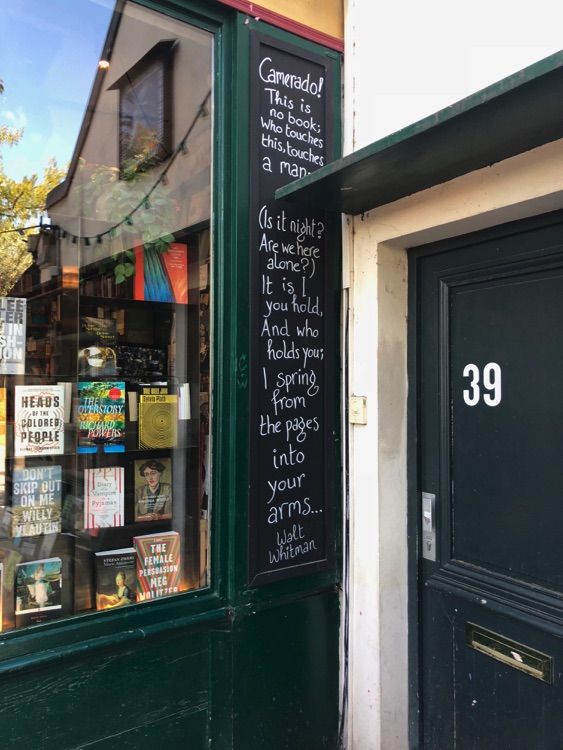 Camerado!
This is
no book;
Who touches
this, touches
a man.
(Is it night?
Are we here
alone?)
It is I
you hold,
And who
holds you;
I spring
from
the pages
into
your
arms...
Walt
Whitman
39
IN
HEADS
OF THE
COLORED
PEOPLE
THE
OVERSTORY
RICHARD
POWERS
THE BELL JAR
Sylvia Plath
DON'T
SKIP OUT
ON ME
WILLY
VLAUTIN
Diary
of a
Vampire
in
Pyjamas
STEFAN ZWEIG
THE
FEMALE
PERSUASION
MEG
WOLITZER